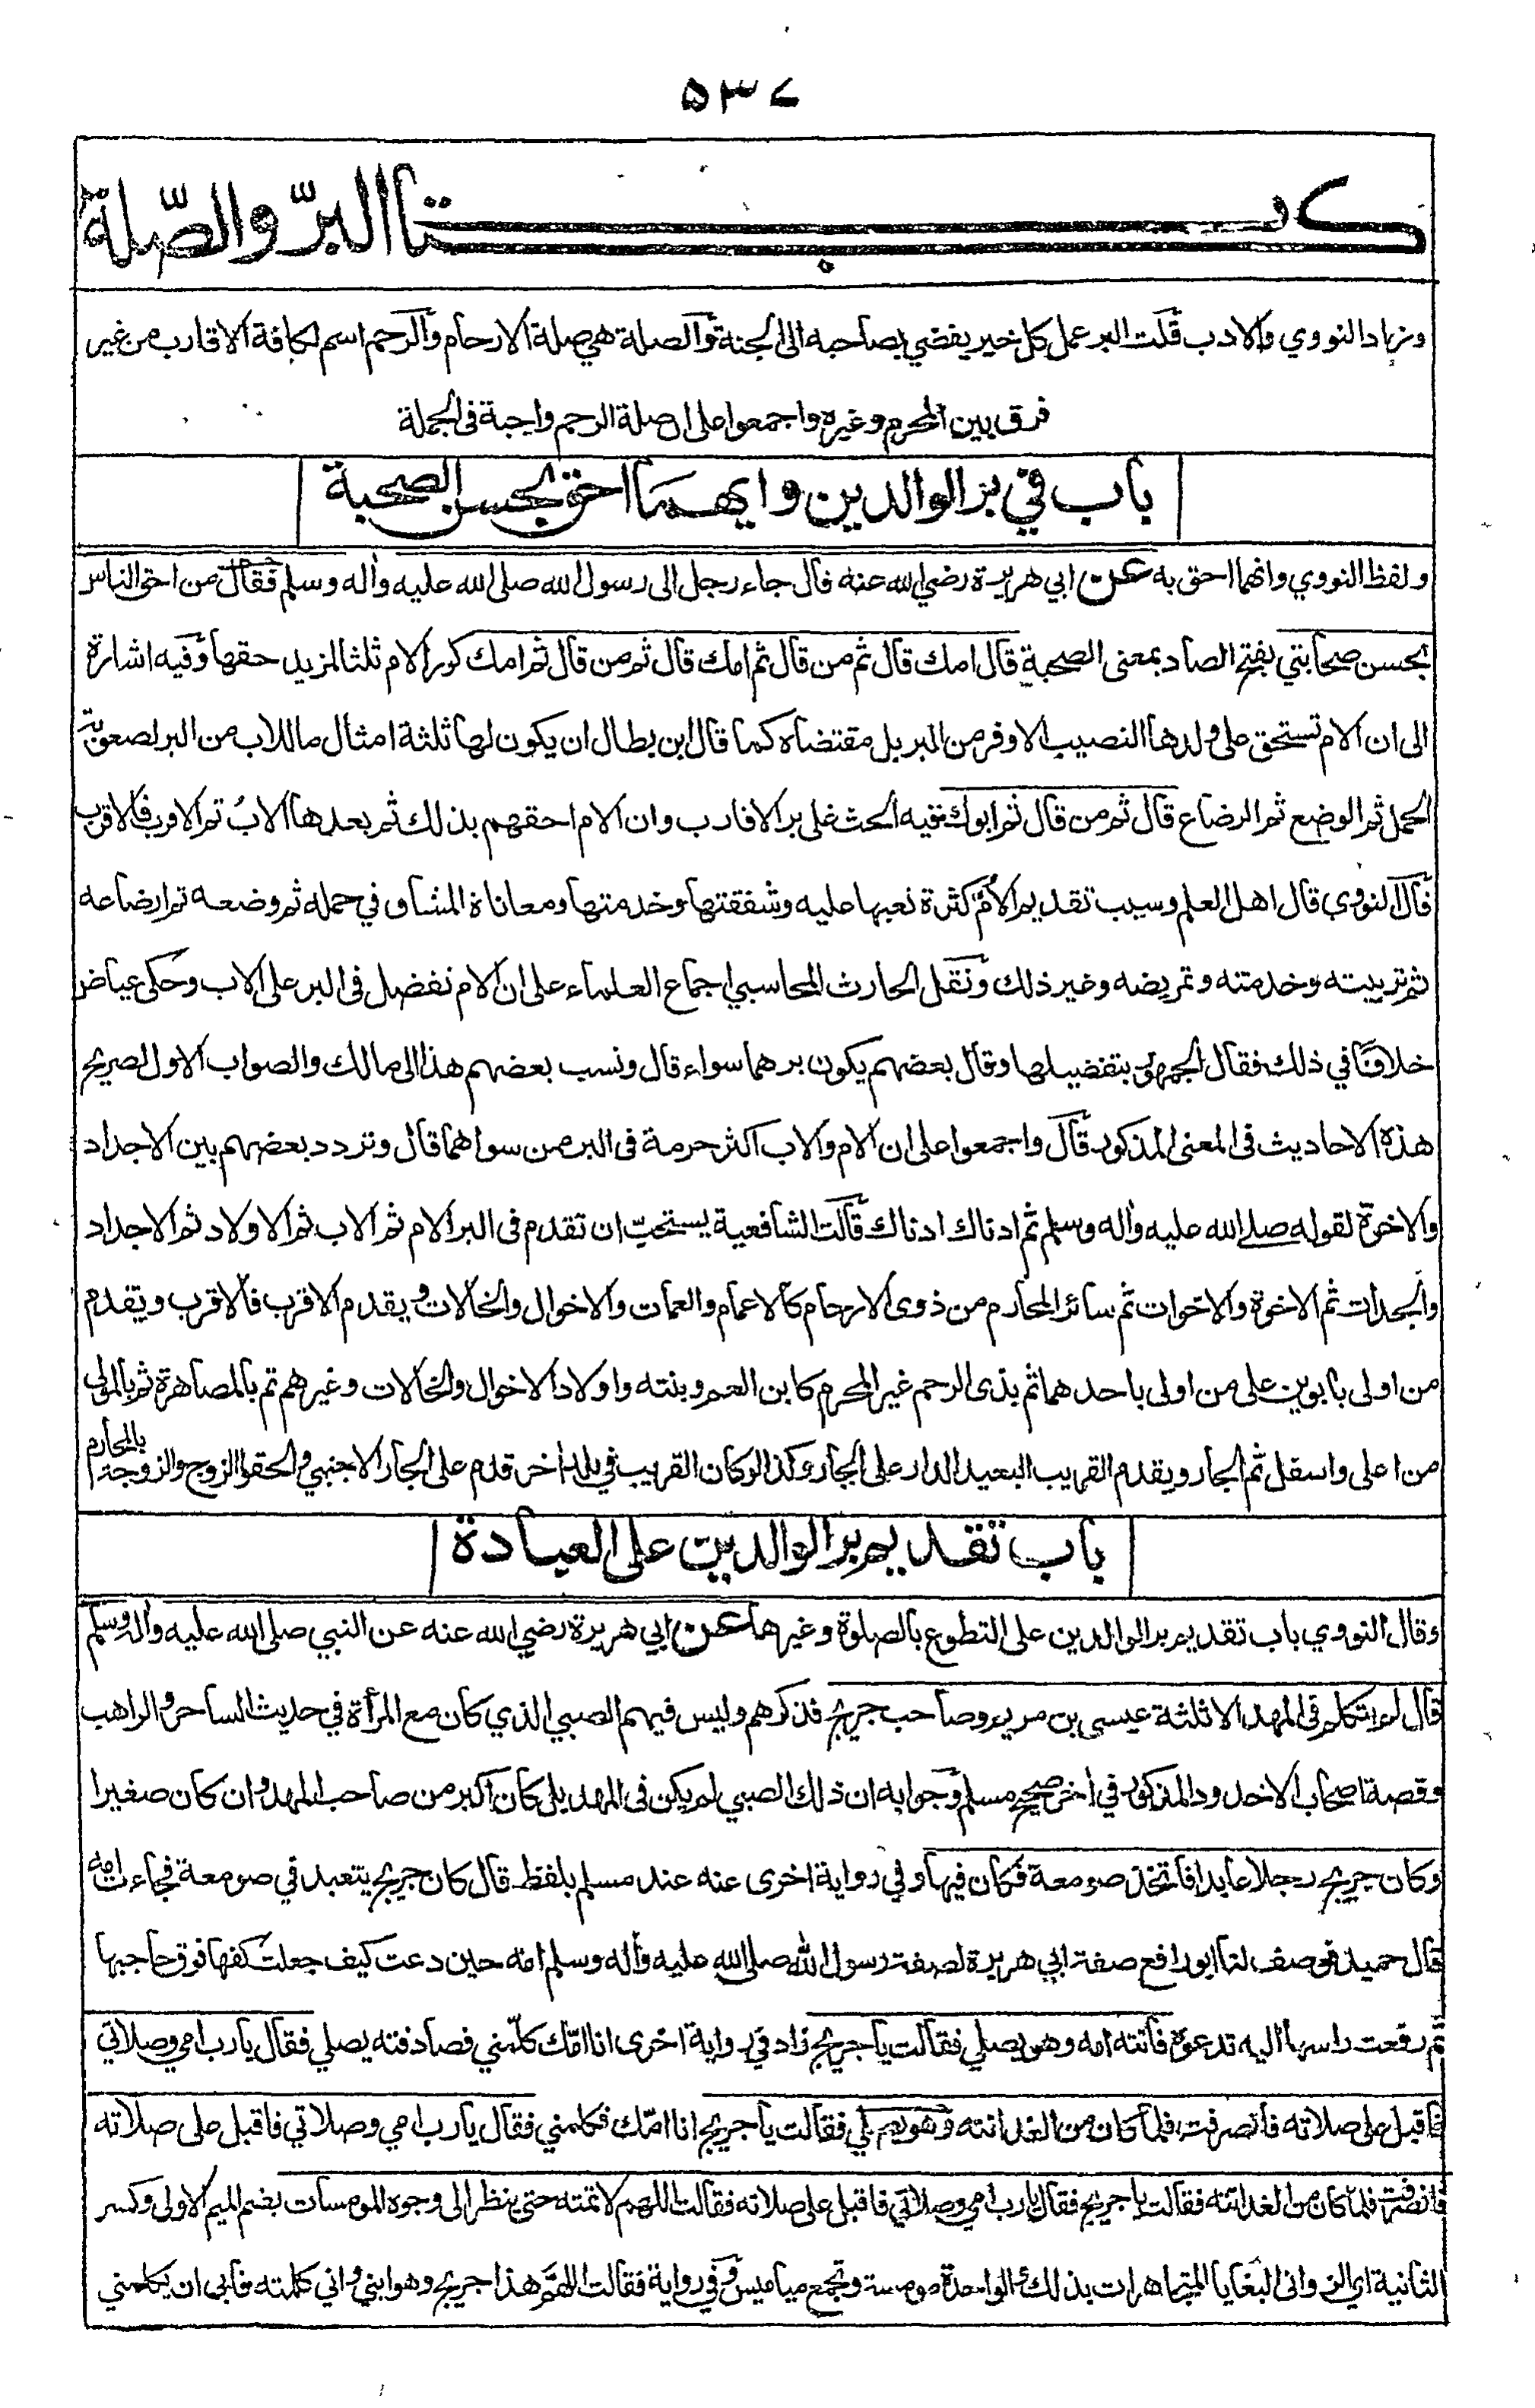 ٥٣٧
كتاب البرّ والصّلة
وزاد النووي والادب قلت البر عمل كل خير يفضي بصاحبه الى الجنة والصلة هي صلة الارحام والرحم اسم لكافة الاقارب من غير
فرق بين المحرم وغيره واجمعوا على ان صلة الرحم واجبة فى الجملة
باب في بر الوالدين وايهما احق بحسن الصحبة
ولفظ النووي وانهما احق به عن ابي هريرة رضي الله عنه قال جاء رجل الى رسول الله صلى الله عليه واٰله وسلم فقال من احق الناس
بحسن صحابتي بفتح الصاد بمعنى الصحبة قال امك قال ثم من قال ثم امك قال ثم من قال ثم امك كرر الام ثلثا لمزيد حقها وفيه اشارة
الى ان الام تستحق على ولدها النصيب الاوفر من البر بل مقتضاه كما قال ابن بطال ان يكون لها ثلثة امثال ما للاب من البر لصعوبة
الحمل ثم الوضع ثم الرضاع قال ثم من قال ثم ابوك فيه الحث على بر الاقارب وان الام احقهم بذلك ثم بعدها الاب ثم الاقرب فالاقرب
قال النووي قال اهل العلم وسبب تقديم الام كثرة تعبها عليه وشفقتها وخدمتها ومعاناة المشاق في حمله ثم وضعه ثم ارضاعه
ثم تربيته وخدمته وتمريضه وغير ذلك ونقل الحارث المحاسبي اجماع العلماء على ان الام تفضل فى البر على الاب وحكى عياض
خلافًا في ذلك فقال الجمهور بتفضيلها وقال بعضهم يكون برهما سواء قال ونسب بعضهم هذا الى مالك والصواب الاول لصريح
هذه الاحاديث فى المعنى المذكور قال واجمعوا على ان الام والاب اكثر حرمة فى البر ممن سواهما قال وتردد بعضهم بين الاجداد
والاخوة لقوله صلى الله عليه واٰله وسلم ثم ادناك ادناك قالت الشافعية يستحب ان تقدم فى البر الام ثم الاب ثم الاولاد ثم الاجداد
والجدات ثم الاخوة والاخوات ثم سائر المحارم من ذوى الارحام كالاعمام والعمات والاخوال والخالات ويقدم الاقرب فالاقرب ويقدم
من اولى بابوين على من اولى باحدهما ثم بذى الرحم غير المحرم كابن العم وبنته واولاد الاخوال والخالات وغيرهم ثم بالمصاهرة ثم بالمولى
من اعلى واسفل ثم الجار ويقدم القريب البعيد الدار على الجار وكذا لو كان القريب في بلد اٰخر قدم على الجار الاجنبي والحقوا الزوج والزوجة بالمحارم
باب تقديم بر الوالدين على العبادة
وقال النووي باب تقديم بر الوالدين على التطوع بالصلوة وغيرها عن ابي هريرة رضي الله عنه عن النبي صلى الله عليه واٰله وسلم
قال لم يتكلم فى المهد الا ثلثة عيسى بن مريم وصاحب جريج فذكرهم وليس فيهم الصبي الذي كان مع المرأة في حديث الساحر والراهب
وقصة اصحاب الاخدود المذكور في اٰخر صحيح مسلم وجوابه ان ذلك الصبي لم يكن فى المهد بل كان اكبر من صاحب المهد وان كان صغيرا
وكان جريج رجلا عابدا فاتخذ صومعة فكان فيها وفي رواية اخرى عنه عند مسلم بلفظ قال كان جريج يتعبد في صومعة فجاءت امه
قال حميد فوصف لنا ابو رافع صفة ابي هريرة لصفة رسول الله صلى الله عليه واٰله وسلم امه حين دعت كيف جعلت كفها فوق حاجبها
ثم رفعت راسها اليه تدعوه فاتته امه وهو يصلي فقالت يا جريج زاد في رواية اخرى انا امّك كلّمني فصادفته يصلي فقال يا رب امي وصلاتي
فاقبل على صلاته فانصرفت فلما كان من الغد اتته وهو يصلي فقالت يا جريج انا امّك فكلمني فقال يا رب امي وصلاتي فاقبل على صلاته
فانصرفت فلما كان من الغد اتته فقالت يا جريج فقال يا رب امي وصلاتي فاقبل على صلاته فقالت اللهم لا تمته حتى ينظر الى وجوه المومسات بضم الميم الاولى وكسر
الثانية اي الزوانى البغايا المتجاهرات بذلك والواحدة مومسة وتجمع مياميس وفي رواية فقالت اللهمّ هذا جريج وهو ابني واني كلمته فابى ان يكلمني